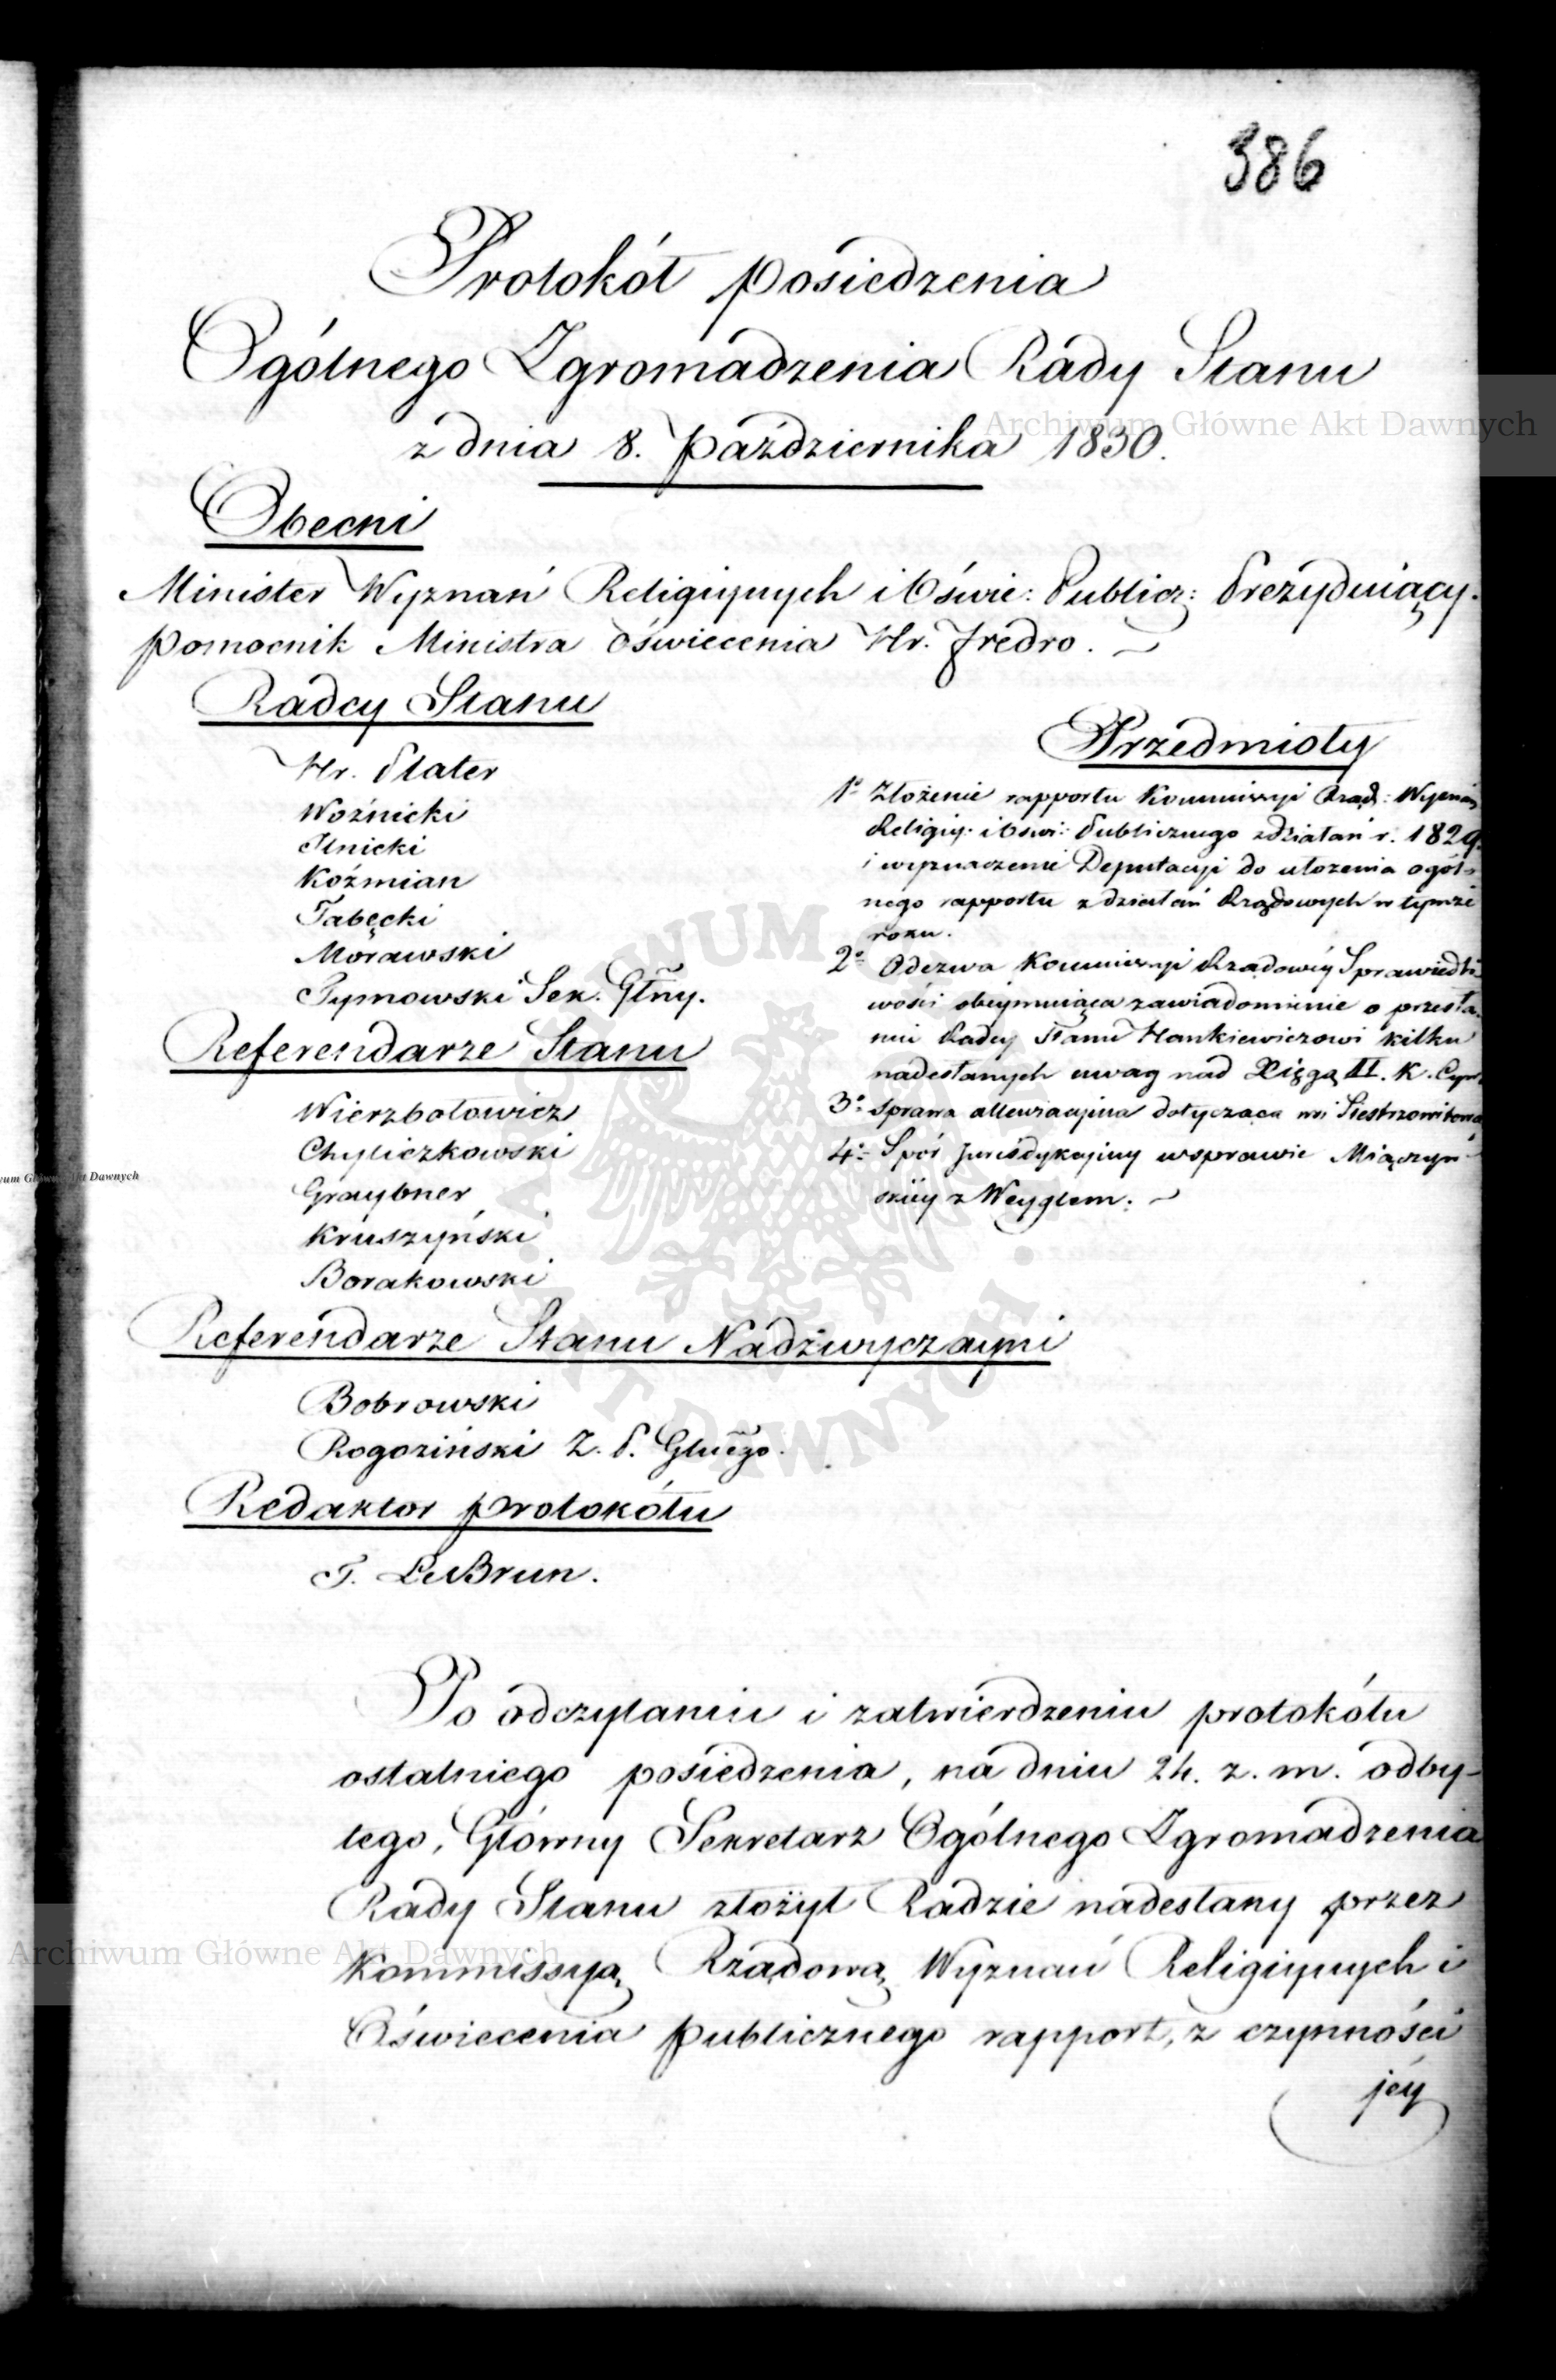 386
Protokół posiedzenia
Ogólnego Zgromadzenia Rady Stanu
z dnia 8. Października 1830.
Obecni
Minister Wyznań Religiynych i Oświe: Publicz: Prezyduiący.
Pomocnik Ministra Oświecenia Hr. Fredro.
Radcy Stanu
Hr. Plater
Woźnicki
Ilnicki
Koźmian
Tabęcki
Morawski
Tymowski Sek. Głny.
Referendarze Stanu
Wierzbołowicz
Chyliczkowski
Graybner
Kruszyński
Borakowski
Referendarze Stanu Nadzwyczayni
Bobrowski
Rogoziński Z. P. Głnego.
Redaktor protokółu
T. LeBrun.
Przedmioty
1° Złożenie rapportu Kommissyi Rząd: Wyznań
Religiy: i Oświ: Publicznego z działań r. 1829.
i wyznaczenie Deputacyi do ułożenia ogól-
nego rapportu z działań Rządowych w tymże
roku.
2° Odezwa Kommissyi Rządowéy Sprawiedli
wości obeymuiąca zawiadomienie o przesła-
niu Radcy Stanu Hankiewiczowi kilku
nadesłanych uwag nad Xięgą II. K. Cyw.
3° Sprawa allewiacyina dotycząca wsi
4° Spór Jurisdykcyiny w sprawie Miączyń-
skiéy z Weyglem.
Po odczytaniu i zatwierdzeniu protokółu
ostatniego posiedzenia, na dniu 24. z. m. odby-
tego, Główny Sekretarz Ogólnego Zgromadzenia
Rady Stanu złożył Radzie nadesłany przez
Kommissyą Rządową Wyznań Religiynych i
Oświecenia Publicznego rapport, z czynności
jéy
Archiwum Główne Akt Dawnych
Archiwum Główne Akt Dawnych
um Główne Akt Dawnych
ARCHIWUM
AKT DAWNYCH